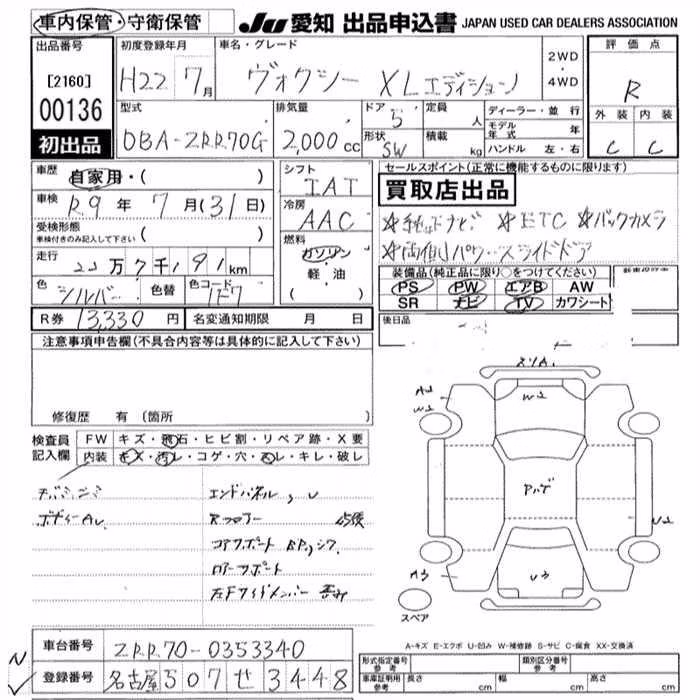 車内保管・守衛保管
JU 愛知 出品申込書 JAPAN USED CAR DEALERS ASSOCIATION
出品番号
[2160]
00136
初出品
初度登録年月
H22 7月
車名・グレード
ヴォクシー XLエディション
2WD
・
4WD
評価点
R
外装 内装
C C
型式
DBA-ZRR70G
排気量
2,000 cc
ドア 5
形状 SW
定員 人
積載 kg
ディーラー・並行
モデル年式 年
ハンドル 左・右
車歴
自家用・( )
車検 R9年7月(31日)
受検形態
車検付きのみ記入して下さい ( )
走行
22万7千191km
色 シルバー 色替 色コード 1F7
シフト
IAT
冷房
AAC
燃料
ガソリン
・
軽・油
( )
セールスポイント(正常に機能するものに限ります)
買取店出品
※純正ナビ ※ETC ※バックカメラ
※両側パワースライドドア
装備品(純正品に限り○をつけてください)
PS PW エアB AW
SR ナビ TV カワシート
後日品
R券 13,330円 名変通知期限 月 日
注意事項申告欄(不具合内容等は具体的に記入して下さい)
修復歴 有(箇所
検査員
記入欄
FW キズ・飛石・ヒビ割・リペア跡・X要
内装 キズ・汚レ・コゲ・穴・スレ・キレ・破レ
ボディーAU
エンドパネル, U
Rフロアー
コアサポート
左Fサイドメンバー
W2
A2
W2
U2
A3
U3
スペア
A-キズ E-エクボ U-凹み W-補修跡 S-サビ C-腐食 XX-交換済
車台番号 ZRR70-0353340
登録番号 名古屋 507 せ 3448
型式指定番号
参考
類別区分番号
参考
車庫証明用
参考
長さ cm 幅 cm 高さ cm